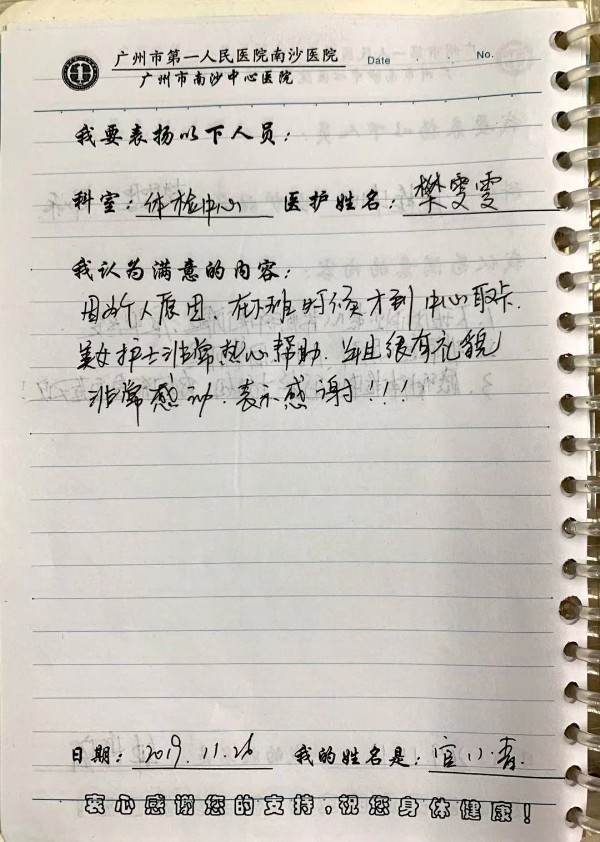 广州市第一人民医院南沙医院 Date . . No.
广州市南沙中心医院
我要表扬以下人员：
科室：体检中心 医护姓名：樊雯雯
我认为满意的内容：
因为个人原因，在下班时候才到中心取卡.
美女护士非常热心帮助.并且很有礼貌
非常感动.表示感谢！！！
日期：2019.11.26 我的姓名是：官小青.
衷心感谢您的支持，祝您身体健康！